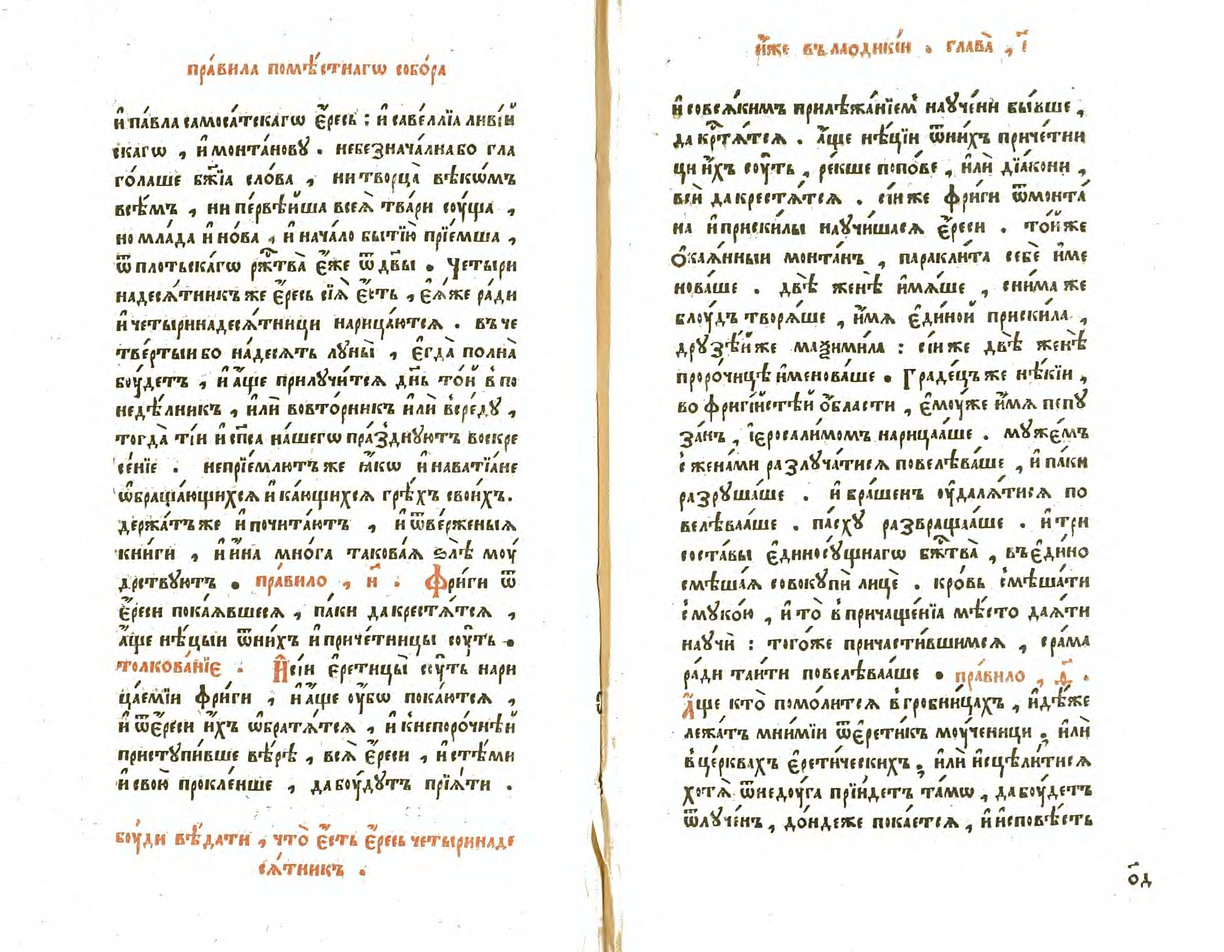 пра́вила помѣ́стнагѡ собо́ра
и҆па́вла самоса́тскагѡ є҆́ресь : и҆ савеллїа ливїй
скагѡ , и҆ монта́нову . небезнача́лна бо гла
го́лаше бж҃їа сло́ва , ни творца̀ вѣкѡ́мъ
всѣ́мъ , ни пе́рвѣйша всеѧ̀ тва́ри соу́ща ,
но мла́да и҆ но́ва , и҆ нача́ло бытїю̀ прїе́мша ,
ѿ пло́тьскагѡ ржⷭ҇тва̀ є҆́же ѿ дв҃ы . Четыри
надесѧ́тникъ же є҆́ресь сїѧ̀ є҆́сть , є҆ѧ́же ра́ди
и҆ четыринадесѧ́тници нарица́ютсѧ . въ че
тве́ртыи бо на́десѧть луны̀ , є҆гда̀ полна̀
боу́детъ , и҆ а҆́ще прилучи́тсѧ дн҃ь то́й в по
недѣ́лникъ , и҆лѝ вовто́рникъ и҆лѝ в сре́ду ,
тогда̀ ті́и и҆ сп҃са на́шегѡ пра́зднуютъ воскре
се́нїе . непрїе́млютъ же ꙗ҆́кѡ и҆ навати́ане
ѡ҆браща́ющихсѧ и҆ ка́ющихсѧ грѣ́хъ свои́хъ .
держа́тъ же и҆ почита́ютъ , и҆ ѿве́рженыѧ
кни́ги , и҆ и҆́на мно́га такова́ѧ ѕлѣ̀ моу́
дрствуютъ . пра́вило , и҃ . Фри́ги ѿ
є҆́реси пока́ѧвшесѧ , па́ки да крестѧ́тсѧ ,
а҆́ще нѣ́цыи ѿ ни́хъ и҆ приче́тницы соу́ть .
толкова́нїе . И҆ сі́и є҆ретицы̀ соу́ть нари
ца́емїи фри́ги , и҆ а҆́ще оу҆́бѡ пока́ютсѧ ,
и҆ ѿ є҆́реси и҆́хъ ѡ҆братѧ́тсѧ , и҆ к непоро́чнѣй
приступи́вше вѣ́рѣ , всѧ̀ є҆́реси , и҆ с тѣ́ми
и҆ свою̀ проклене́ше , да боу́дутъ прїѧ́ти .
боу́ди вѣ́дати , что̀ є҆́сть є҆́ресь четыринаде
сѧ́тникъ .
и҆́же въ лаодикі́и . глава̀ , і҃
и҆ со всѧ́кимъ прилѣжа́нїемъ науче́ни бы́вше ,
да крⷭ҇тѧтсѧ . а҆́ще нѣ́цїи ѿ ни́хъ приче́тни
ци и҆́хъ соу́ть , ре́кше попо́ве , и҆лѝ дїа́кони ,
всѝ да крестѧ́тсѧ . сі́и же фри́ги ѿ монта́
на и҆ приски́лы научи́шасѧ є҆́реси . то́й же
ѻ҆каѧ́нныи монта́нъ , паракли́та себѐ и҆ме
нова́ше . двѣ̀ женѣ̀ и҆мѧ́ше , с ни́ма же
блоу́дъ творѧ́ше , и҆́мѧ є҆ди́ной приски́ла ,
друзѣ́й же маѯими́ла : сі́и же двѣ̀ женѣ̀
проро́чицѣ и҆менова́ше . Градецъ же нѣ́кїи ,
во фригі́йстѣй ѻ҆́бласти , є҆моу́же и҆́мѧ пепу
за́нъ , і҆еросали́момъ нарица́аше . муже́мъ
с жена́ми разлуча́тисѧ повелѣва́ше , и҆ па́ки
разруша́ше . и҆ бра́шенъ оу҆далѧ́тисѧ по
велѣва́аше . па́сху развраща́аше . и҆ три
соста́вы є҆диносу́щнагѡ бж҃тва̀ , въ є҆ди́но
смѣша́ѧ совокупѝ лицѐ . кро́вь смѣша́ти
с муко́ю , и҆ то̀ в причаще́нїа мѣ́сто даѧ́ти
научѝ : того́же причасти́вшимсѧ , сра́ма
ра́ди таи́ти повелѣва́аше . пра́вило , ѳ҃ .
А҆́ще кто̀ помо́литсѧ в гробни́цахъ , и҆дѣ́же
лежа́тъ мни́мїи ѿ є҆рети́къ моу́ченици , и҆лѝ
в це́рквахъ є҆рети́ческихъ , и҆лѝ и҆сцѣли́тисѧ
хотѧ̀ ѿ недоу́га прїи́детъ та́мѡ , да боу́детъ
ѿлуче́нъ , до́ндеже пока́етсѧ , и҆ и҆сповѣ́сть
о҃д